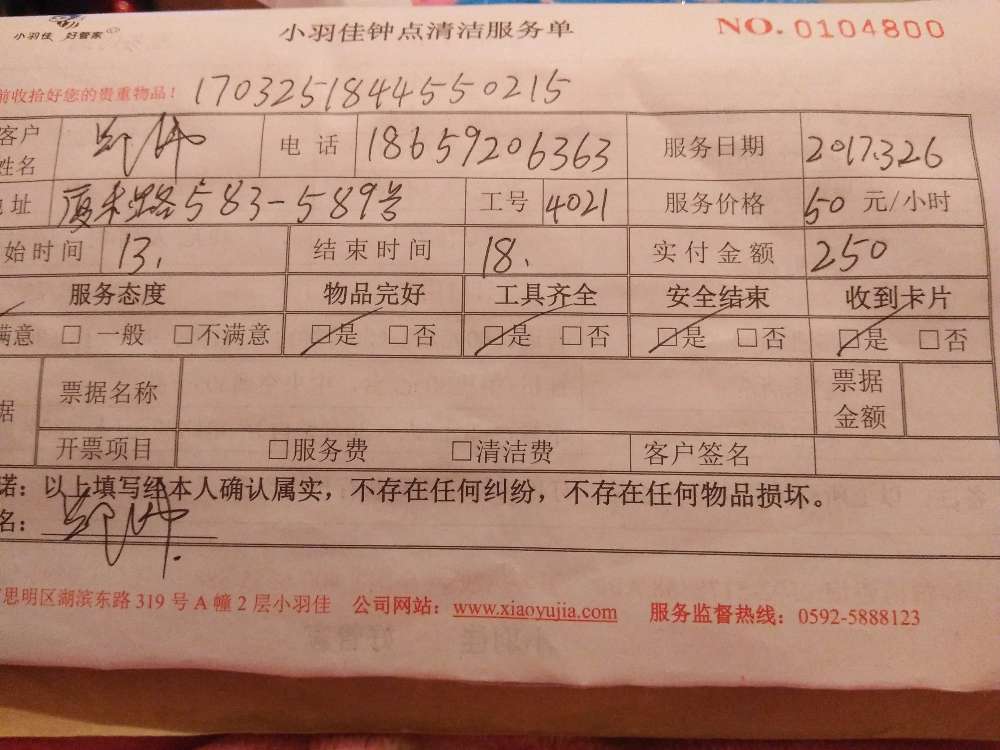 小羽佳 好管家
小羽佳钟点清洁服务单
NO. 0104800
前收拾好您的贵重物品! 17032518444550215
客户姓名 电话 18659206363 服务日期 2017.3.26
址 厦禾路583-589号 工号 4021 服务价格 50 元/小时
始时间 13. 结束时间 18. 实付金额 250
服务态度 物品完好 工具齐全 安全结束 收到卡片
满意 □ 一般 □不满意 □是 □否 □是 □否 □是 □否 □是 □否
据 票据名称 票据金额
开票项目 □服务费 □清洁费 客户签名
诺：以上填写经本人确认属实，不存在任何纠纷，不存在任何物品损坏。
名：
思明区湖滨东路 319 号 A 幢 2 层小羽佳 公司网站：www.xiaoyujia.com 服务监督热线：0592-5888123